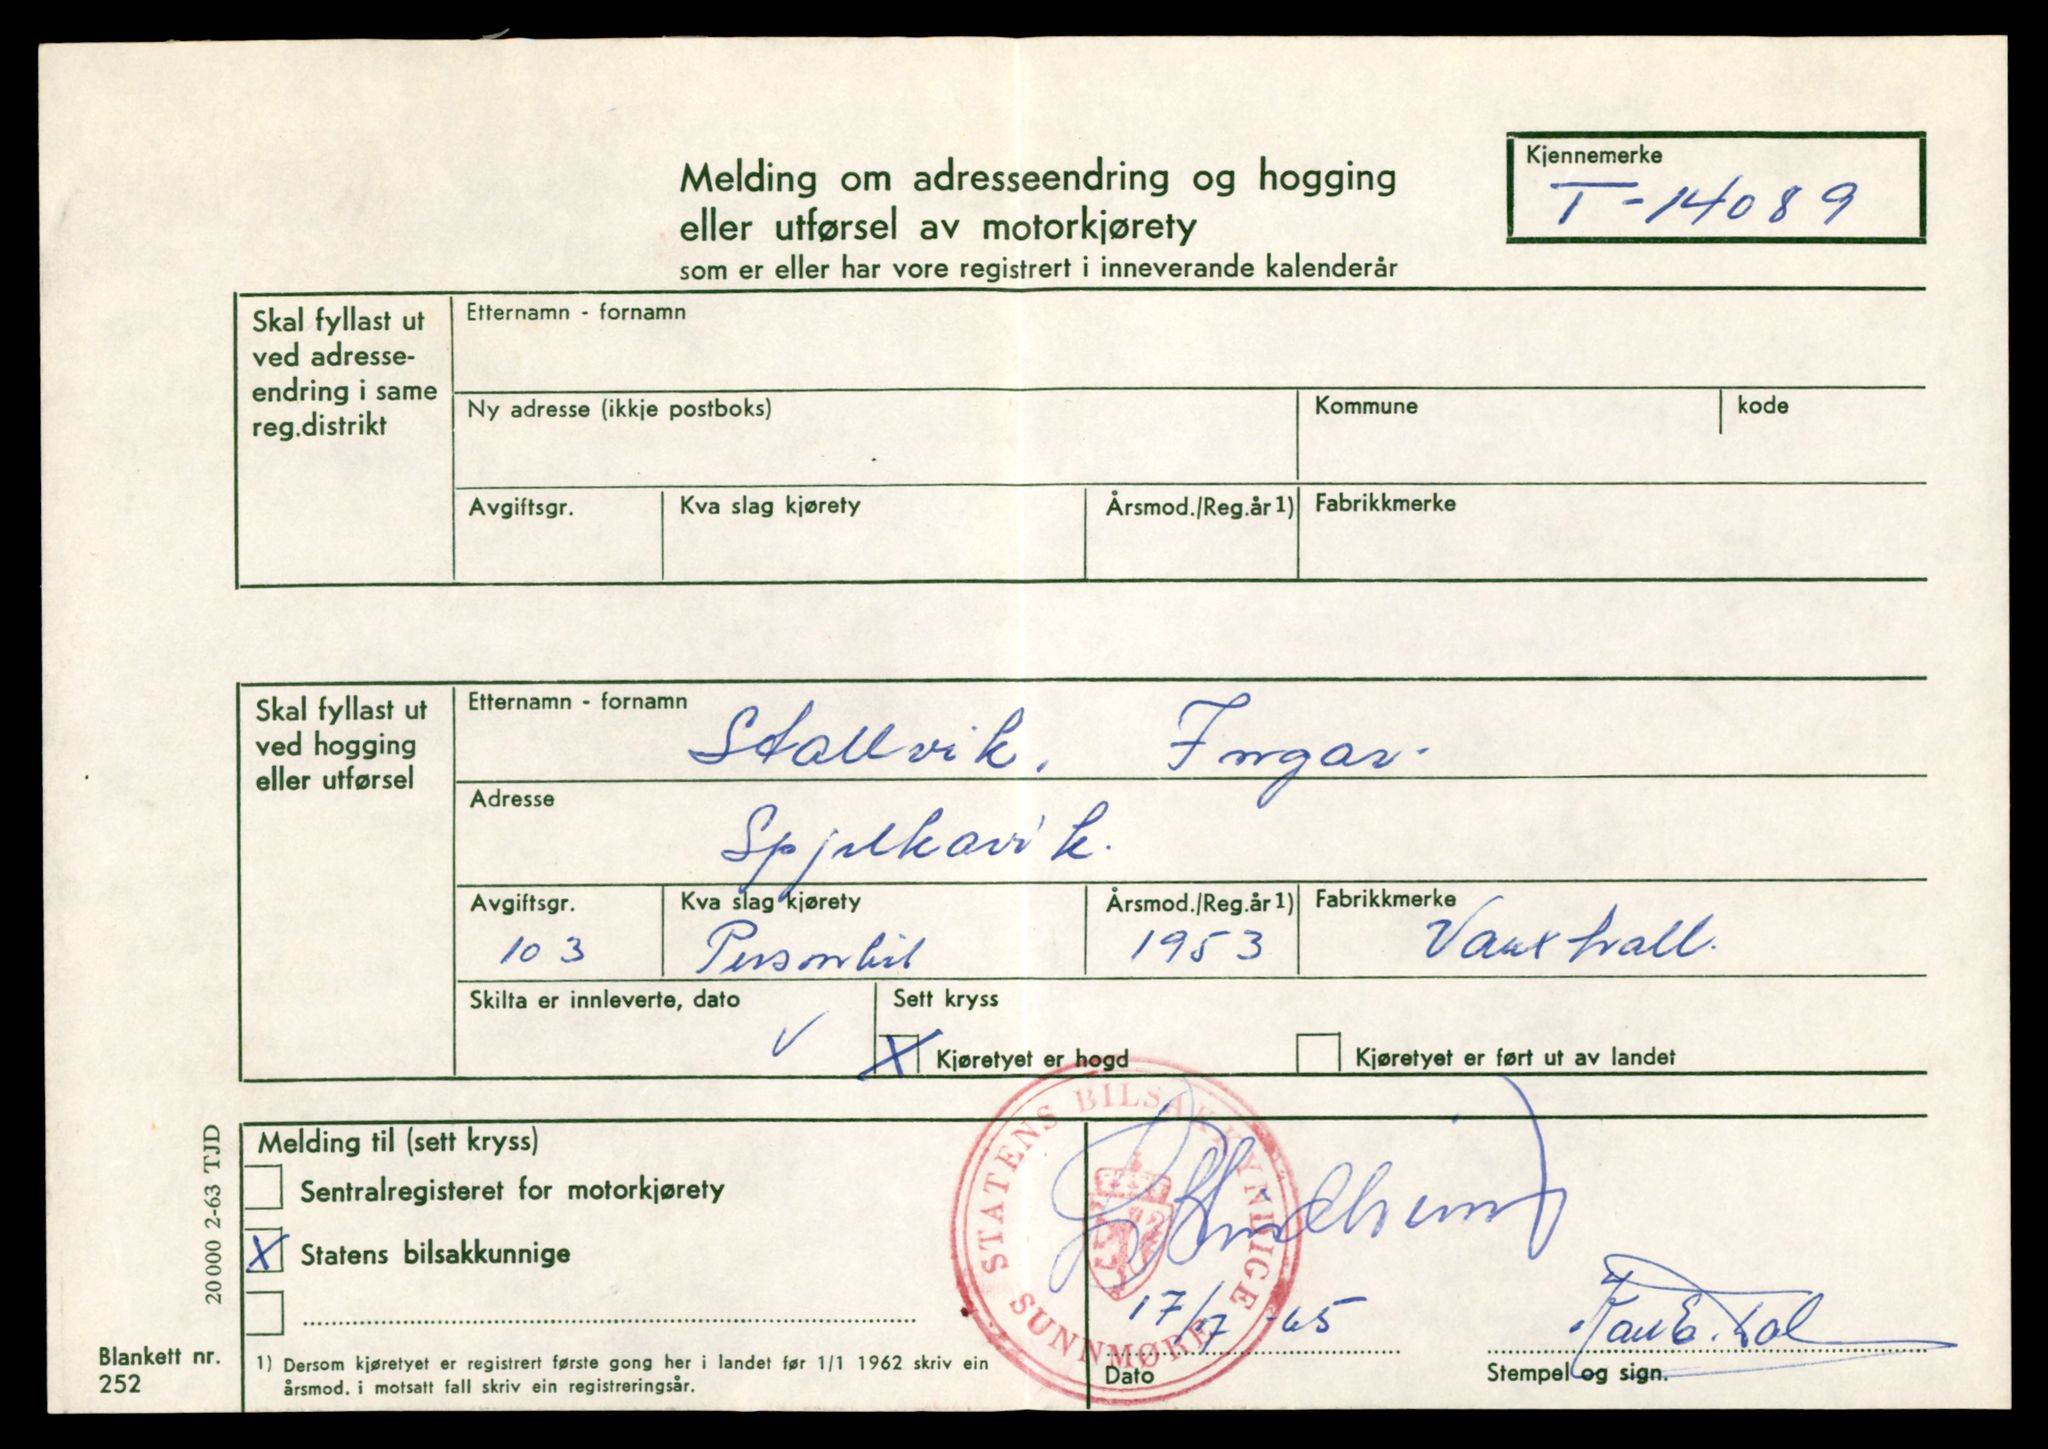 Melding om adresseendring og hogging
eller utførsel av motorkjørety
som er eller har vore registrert i inneverande kalenderår
Kjennemerke
T-14089
Skal fyllast ut
ved adresse-
endring i same
reg.distrikt
Etternamn - fornamn
Ny adresse (ikkje postboks)
Kommune
kode
Avgiftsgr.
Kva slag kjørety
Årsmod./Reg.år 1)
Fabrikkmerke
Skal fyllast ut
ved hogging
eller utførsel
Etternamn - fornamn
Stallvik, Ingar.
Adresse
Spjelkavik.
Avgiftsgr.
Kva slag kjørety
Årsmod./Reg.år 1)
Fabrikkmerke
103
Personbil
1953
Vauxhall.
Skilta er innleverte, dato
Sett kryss
X Kjøretyet er hogd
Kjøretyet er ført ut av landet
Melding til (sett kryss)
Sentralregisteret for motorkjørety
X Statens bilsakkunnige
STATENS BILSAKKYNDIGE
SUNNMØRE
17/7-65
Dato
Stempel og sign.
1) Dersom kjøretyet er registrert første gong her i landet før 1/1 1962 skriv ein
årsmod. i motsatt fall skriv ein registreringsår.
20 000 2-63 TJD
Blankett nr.
252